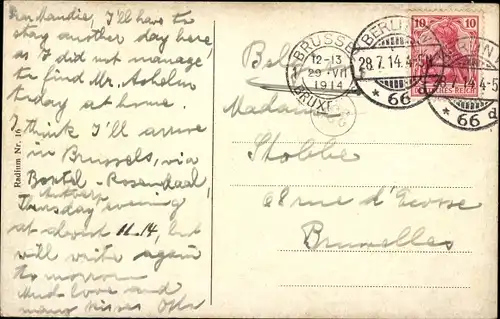 Dear Maudie, I'll have to
stay another day here,
as I did not manage
to find Mr.
today at home.
I think I'll arrive
in Brussels, via
Boxtel-Rosendaal,
Antwerp
Tuesday evening
at about 11.14, but
will write again
to morrow.
Much love and
many kisses
Radium Nr. 16
BRUSSE
12-13
29 VII
1914
BRUX
BERLIN
28.7.14.4-5
* 66 d
10 10
DEUTSCHES REICH
BERLIN
.14.4-5
* 66 d
Madame
Stobbe
68 rue d'Ecosse
Bruxelles